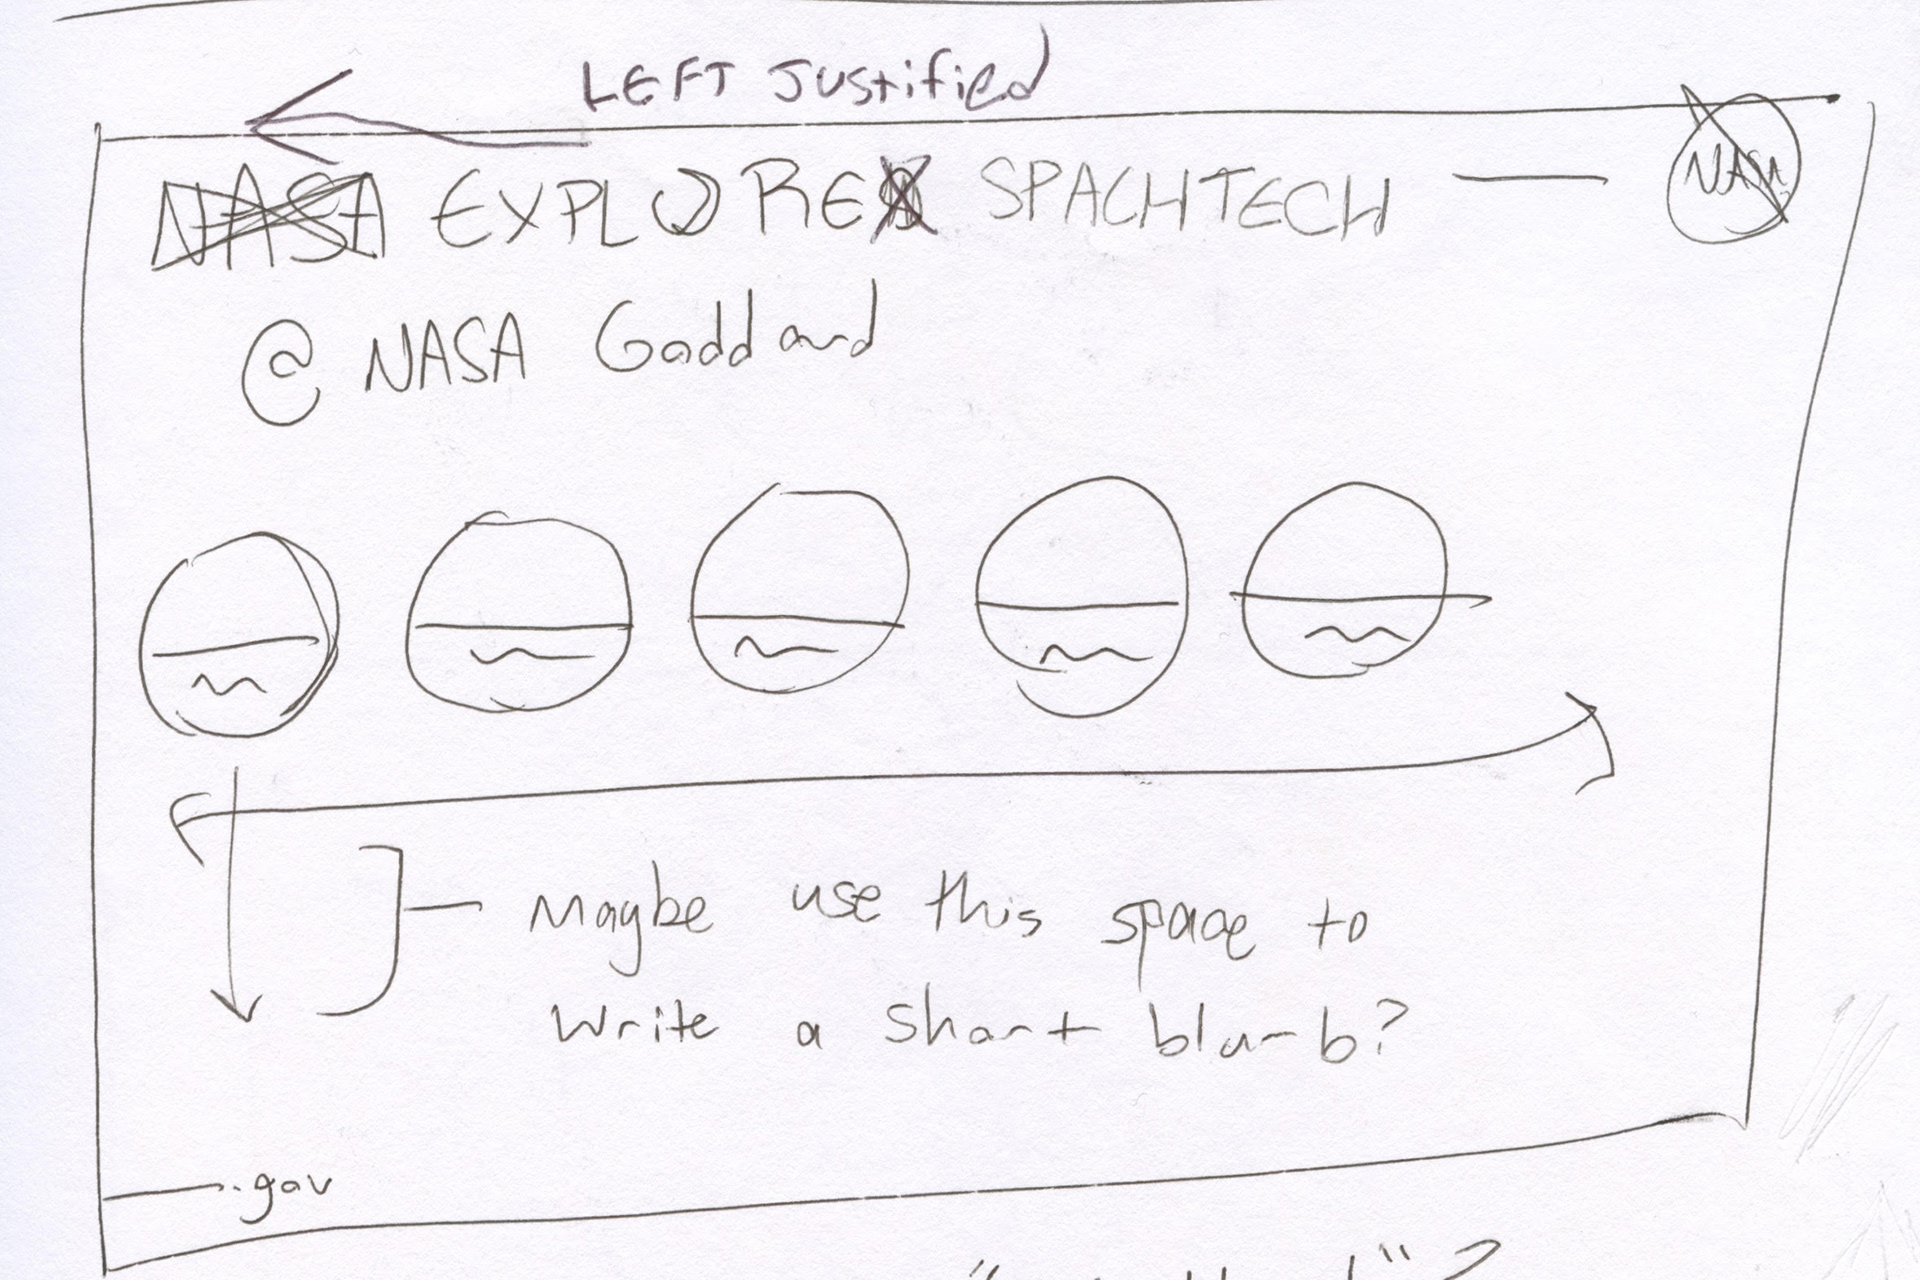 LEFT Justified
NASA EXPLORE SPACHTECH
NASA
@ NASA Goddard
Maybe use this space to
write a short blurb?
.gov